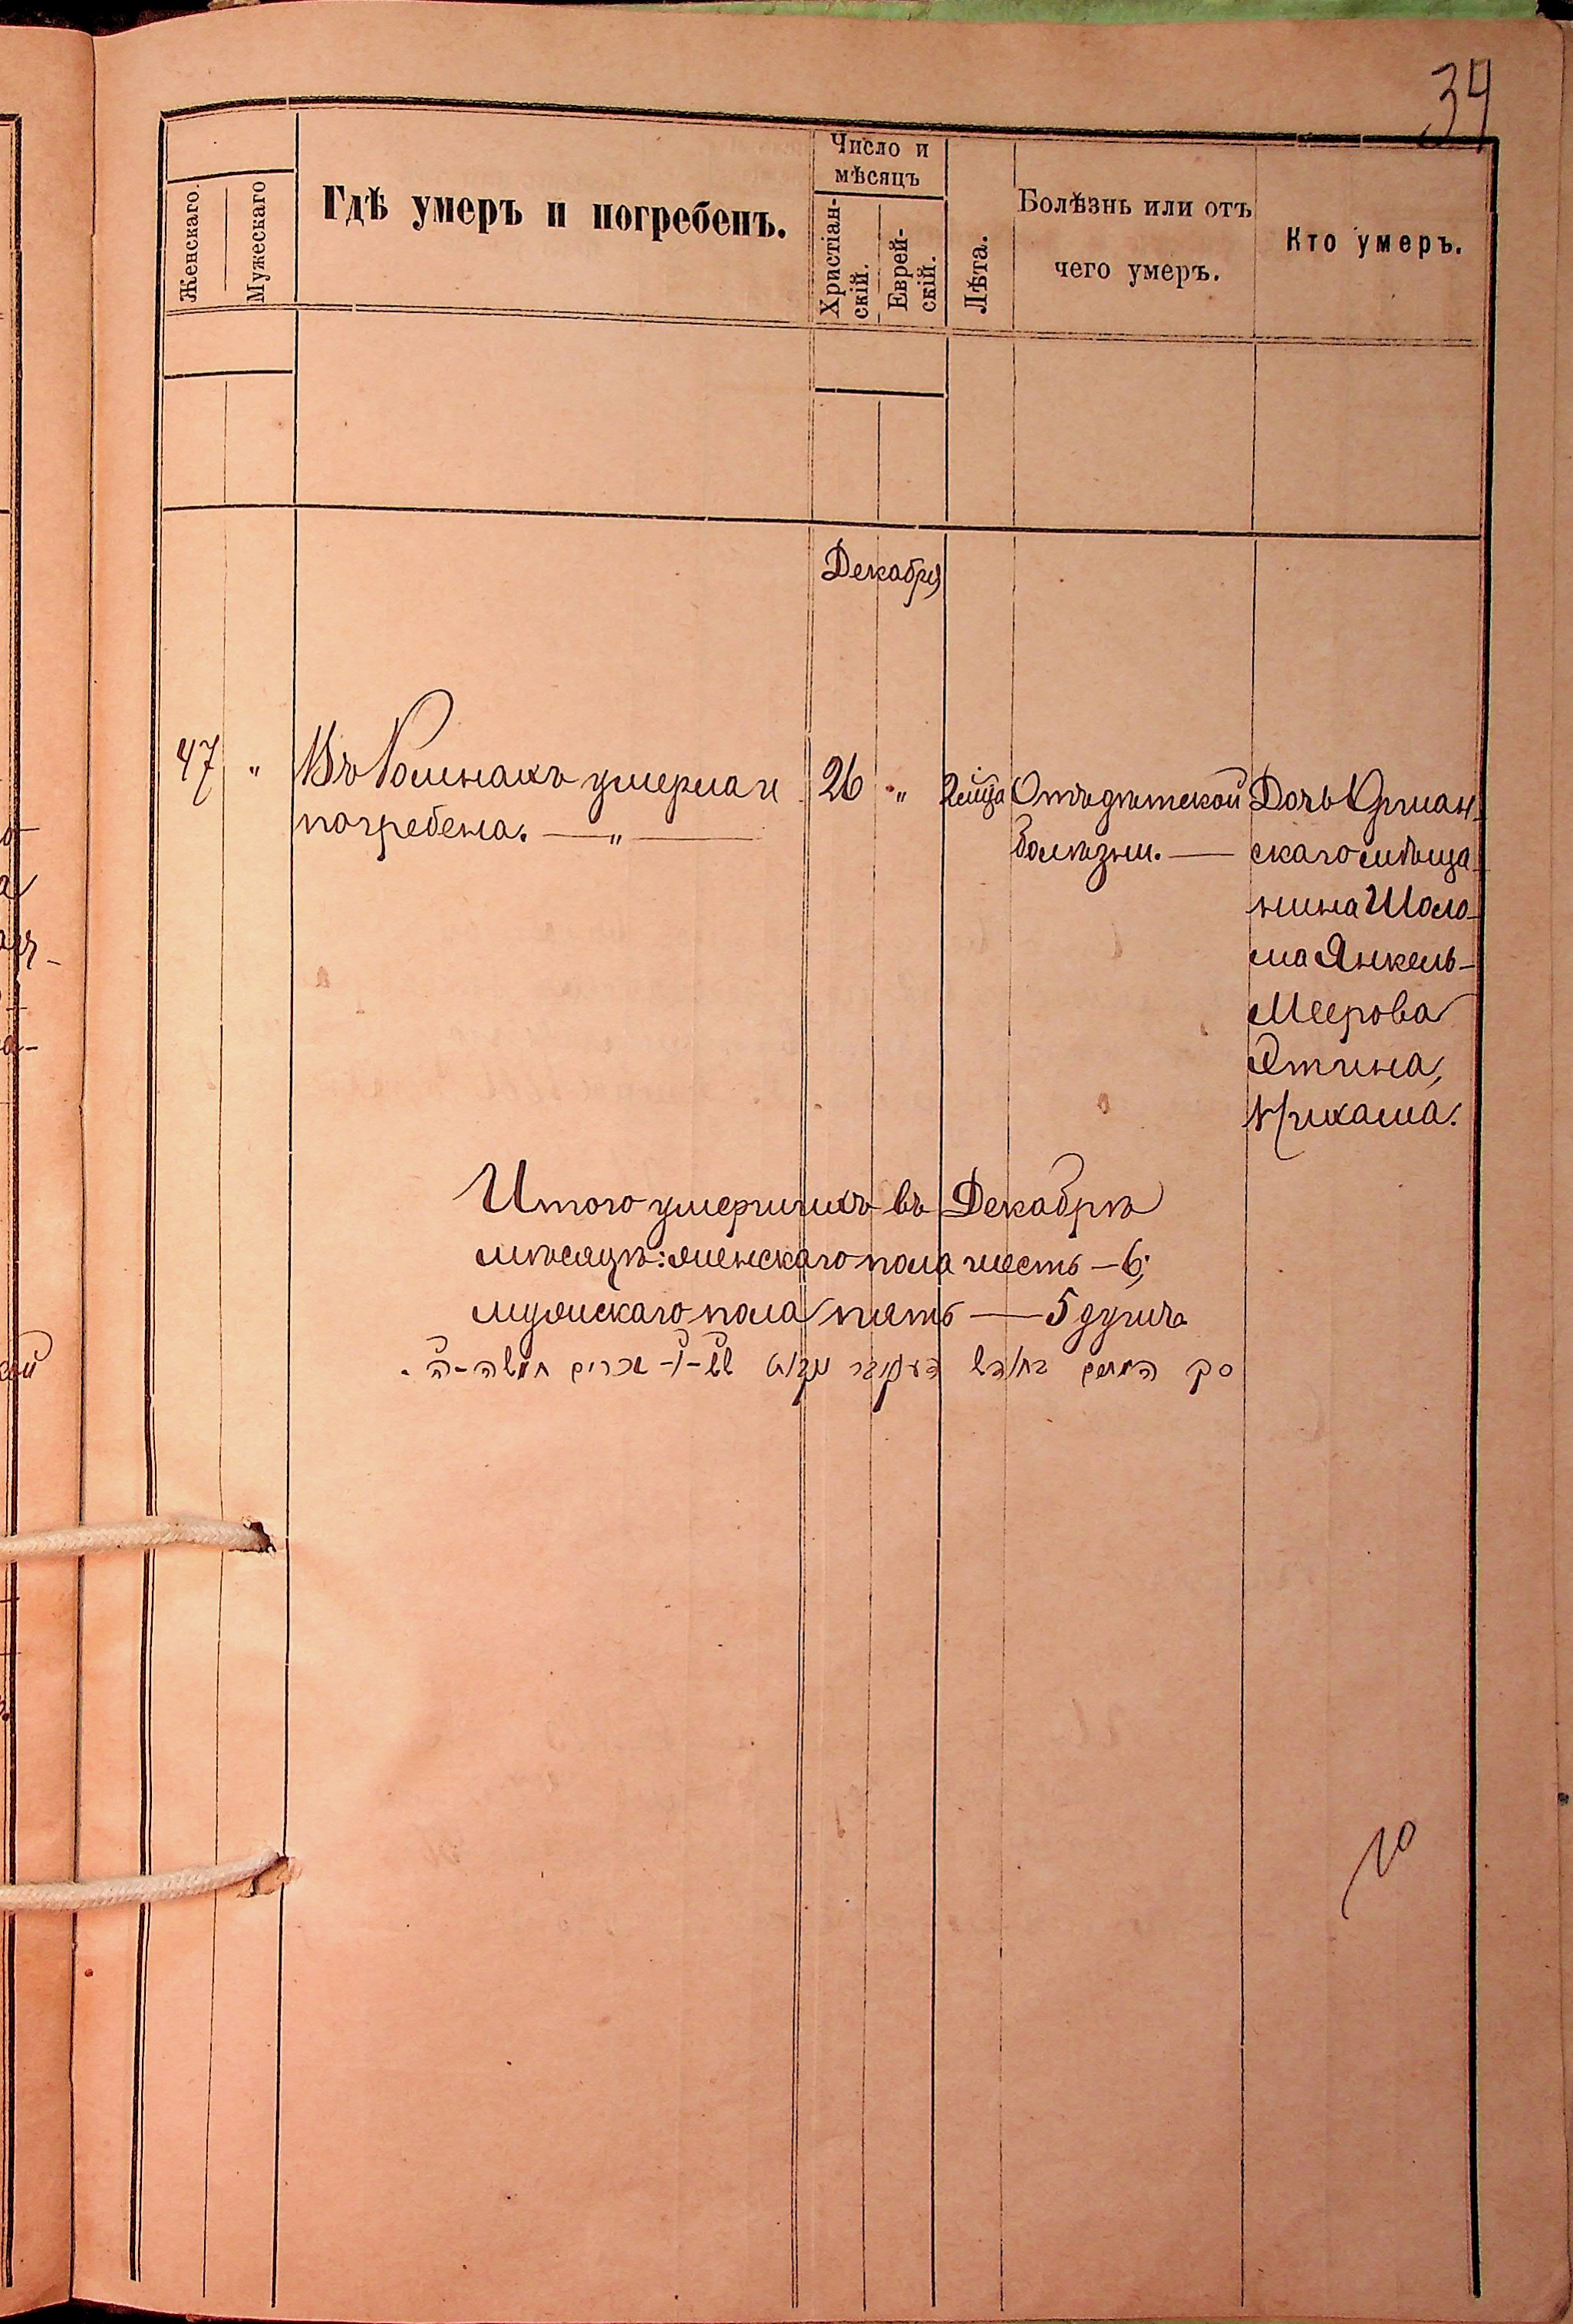 34
Женскаго.
Мужескаго
Гдѣ умеръ и погребенъ.
Число и
мѣсяцъ
Христіан-
скій.
Еврей-
скій.
Лѣта.
Болѣзнь или отъ
чего умеръ.
Кто умеръ.
Декабря
47 " Въ Ромнахъ умерла и
погребена. — " —
26 "
2 мѣца
Отъ дѣтской
болѣзни. —
Дочь
скаго мѣща-
нина Шоло-
ма Янкель-
Меерова
Итого умершихъ въ Декабрѣ
мѣсяцѣ: женскаго пола шесть — 6;
мужскаго пола пять — 5 душъ
סך המתים
10